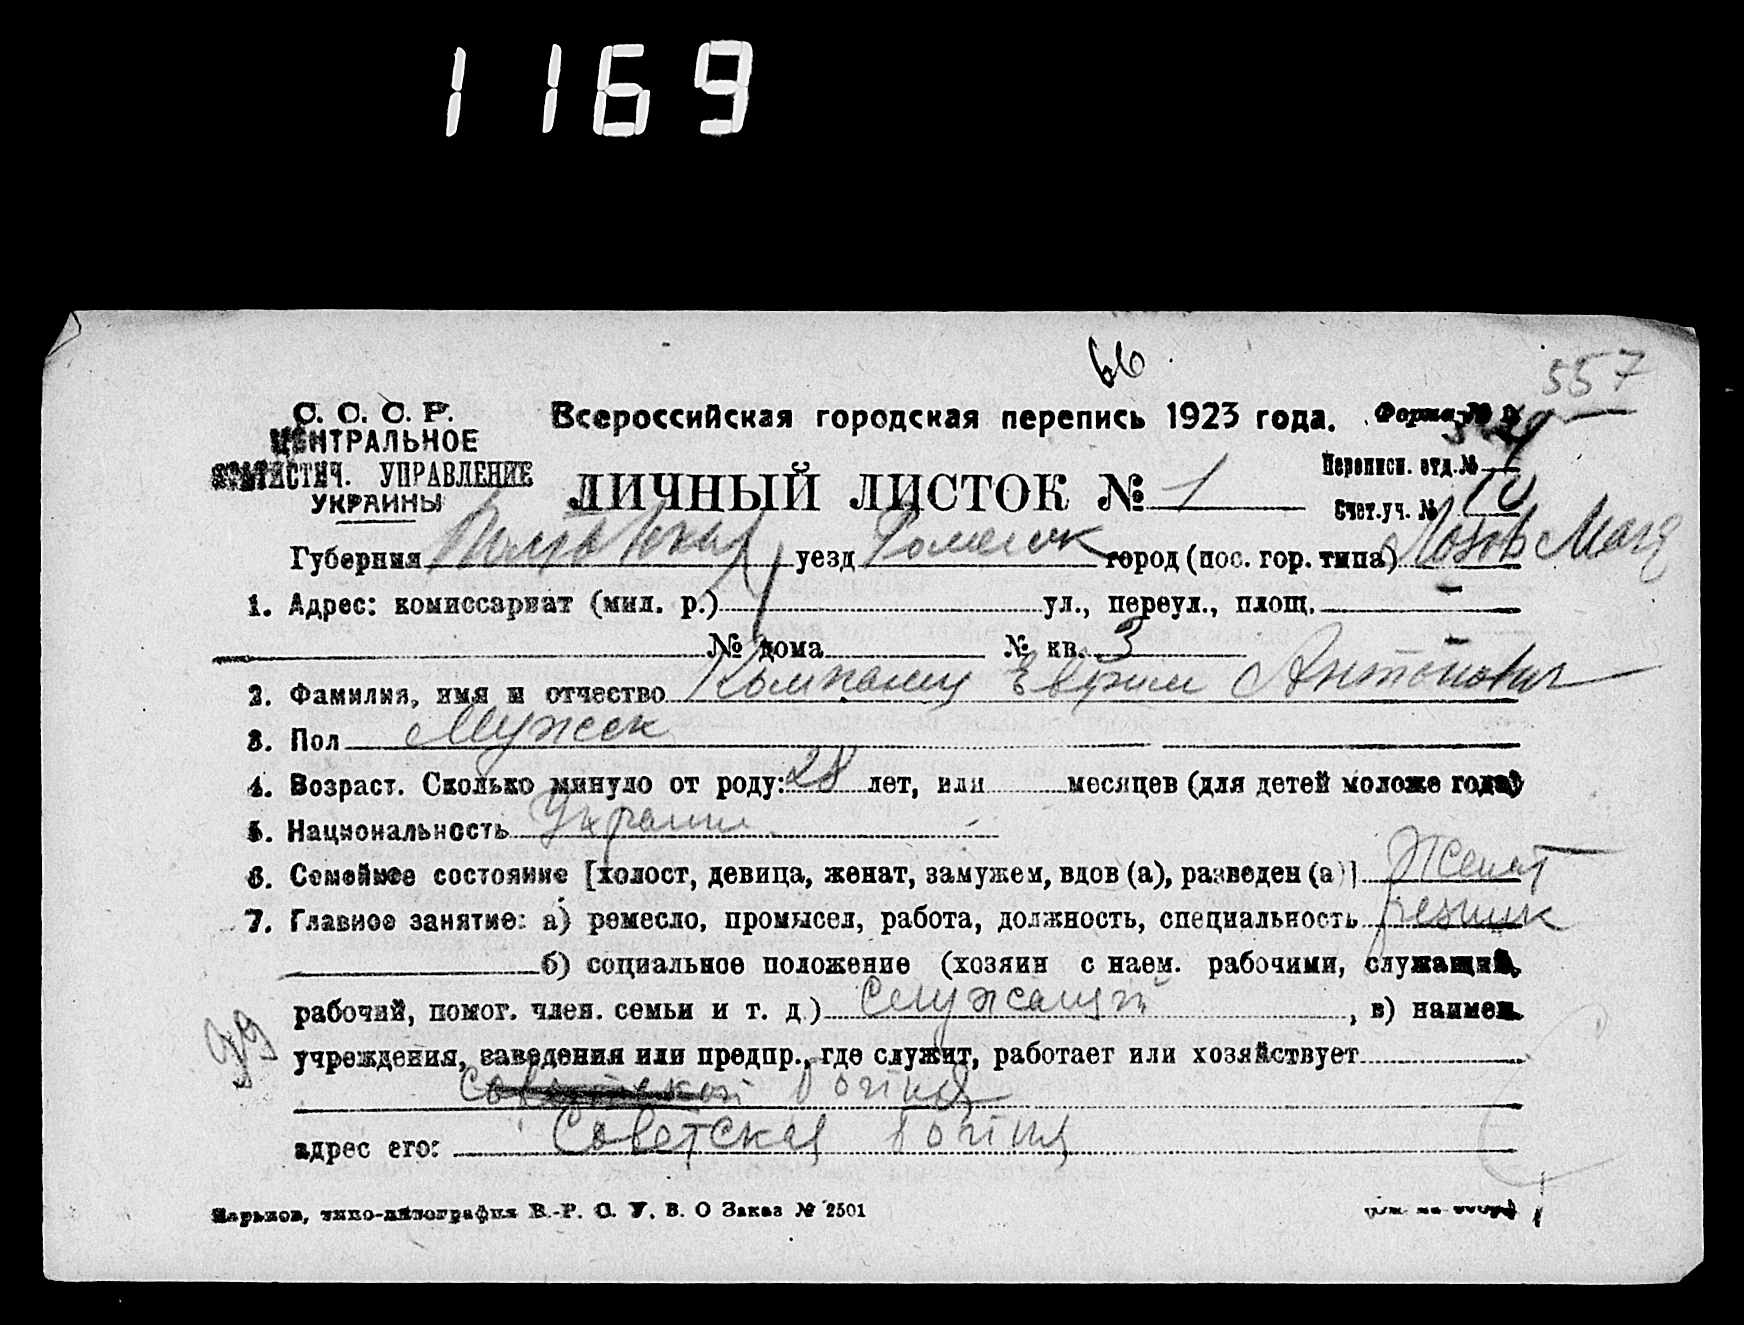 1169
66
557
С. С. С. Р.
ЦЕНТРАЛЬНОЕ
СТАТИСТИЧ. УПРАВЛЕНИЕ
УКРАИНЫ
Всероссийская городская перепись 1923 года. Форма №
ЛИЧНЫЙ ЛИСТОК № 1
Переписн. отд. №
Счет. уч. № 10
Губерния Полтавская уезд Роменск город (пос. гор. типа)
1. Адрес: комиссариат (мил. р.) ул., переул., площ. —
№ дома № кв. 3
2. Фамилия, имя и отчество Компанец Евфим Антонович
3. Пол Мужеск
4. Возраст. Сколько минуло от роду: 28 лет, или месяцев (для детей моложе года)
5. Национальность Украин
6. Семейное состояние [холост, девица, женат, замужем, вдов (а), разведен (а)] Женат
7. Главное занятие: а) ремесло, промысел, работа, должность, специальность резник
б) социальное положение (хозяин с наем. рабочими, служащий,
рабочий, помог. член. семьи и т. д.) Служащий, в) наимен.
99
учреждения, заведения или предпр., где служит, работает или хозяйствует
адрес его: Советская
Харьков, типо-литография В.-Р. С. У. В. О Заказ № 2501